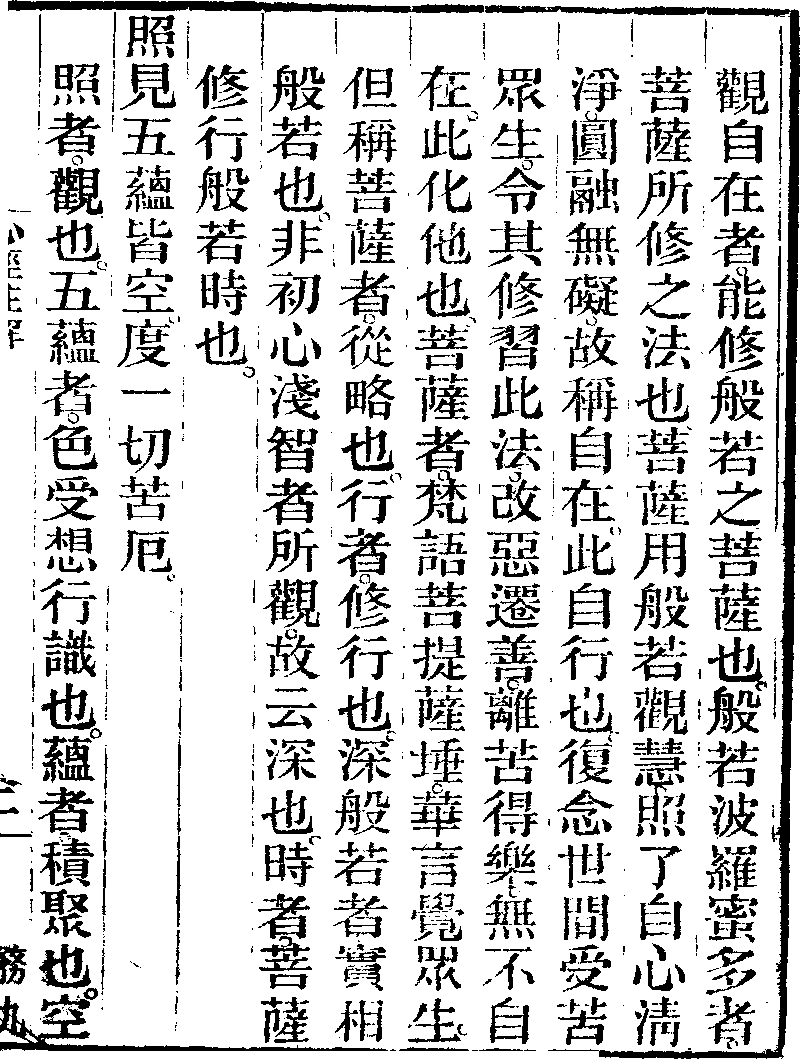 觀自在者。能修般若之菩薩也。般若波羅蜜多者。
菩薩所修之法也。菩薩用般若觀慧。照了自心清
淨。圓融無礙。故稱自在。此自行也。復念世間受苦
眾生。令其修習此法。改惡遷善。離苦得樂。無不自
在。此化他也。菩薩者。梵語菩提薩埵。華言覺眾生。
但稱菩薩者。從略也。行者。修行也。深般若者。實相
般若也。非初心淺智者所觀。故云深也。時者。菩薩
修行般若時也。
照見五蘊皆空。度一切苦厄。
照者。觀也。五蘊者。色受想行識也。蘊者。積聚也。空
心經註解
務九